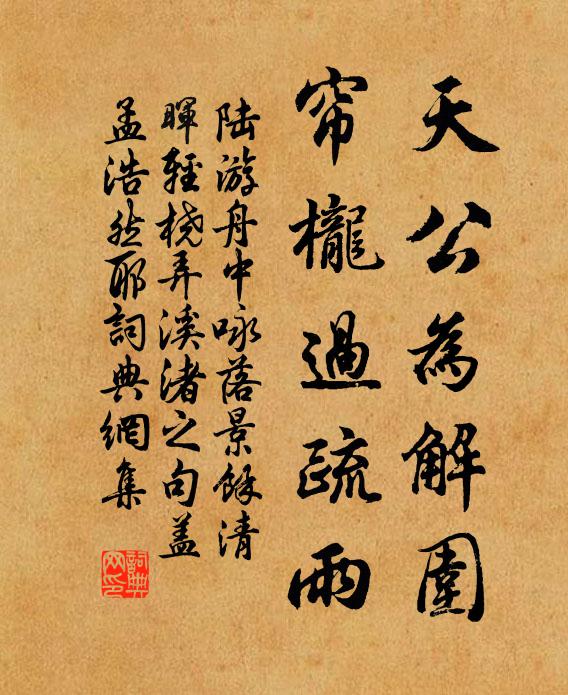 天公為解圍
帘櫳過疏雨
陆游舟中咏落景餘清
暉輕橈弄溪渚之句盖
孟浩然耶詞典網集
詞典网印